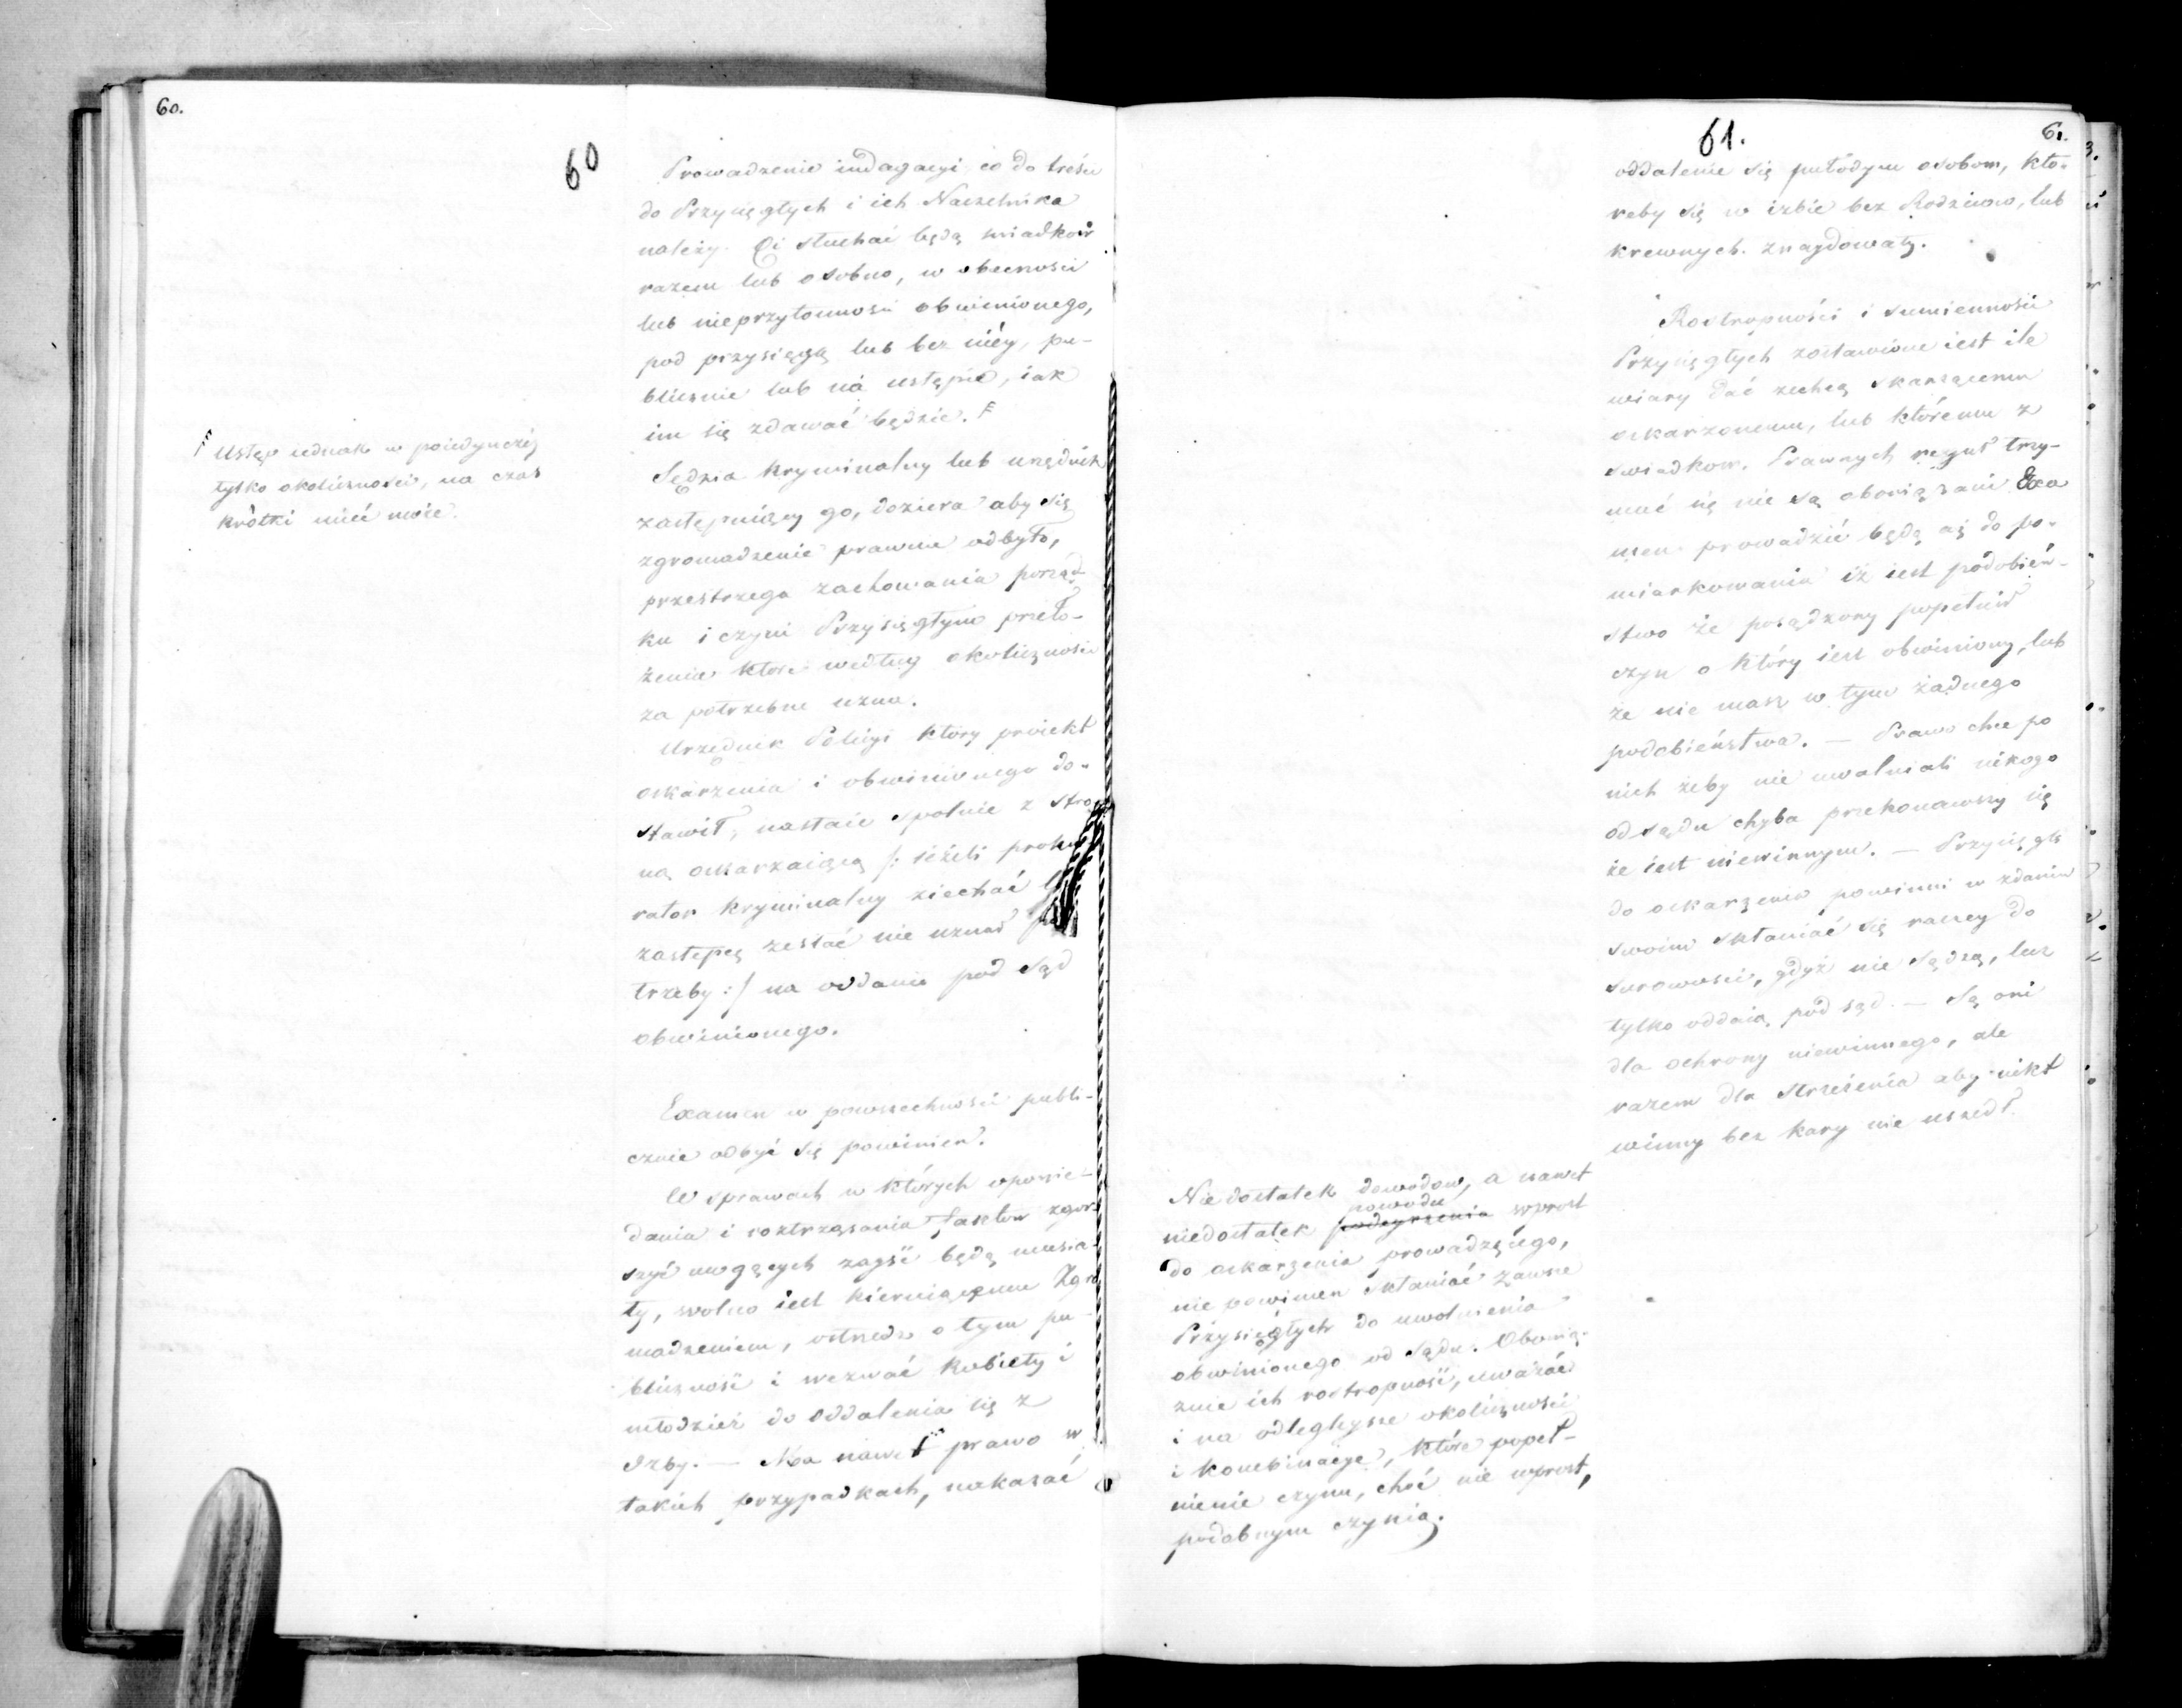 60.
60
Prowadzenie indagacyi co do treści
do Przysięgłych i ich Naczelnika
należy. Ci słuchać będą świadków
razem lub osobno, w obecności
lub nieprzytomności obwinionego,
pod przysięgą lub bez niéy, pu-
blicznie lub na ustępie, iak
im się zdawać będzie. F
F Ustęp iednak w poiedynczéj
tylko okoliczności, na czas
krótki mieć może.
Sędzia kryminalny lub urzędnik
zastępuiący go, doziera aby się
zgromadzenie prawnie odbyło,
przestrzega zachowania porząd-
ku i czyni Przysięgłym przeło-
żenia które według okoliczności
za potrzebne uzna.
Urzędnik Policyi który proiekt
oskarżenia i obwinionego do-
stawił, nastaie spolnie z stro
ną oskarzaiącą /: ieżeli proku
rator kryminalny ziechać l
zastępcę zesłać nie uznał p
trzeby :/ na oddanie pod sąd
obwinionego.
Examen w powszechności publi-
cznie odbyć się powinien.
W sprawach w których opowie-
dania i roztrząsania faktow zgor-
szyć mogących zayść będą musia-
ły, wolno iest kieruiącemu Zgro
madzeniem, ostrzedz o tym pu-
bliczność i wezwać kobiety i
młodzież do oddalenia się z
Izby. — Ma nawet prawo w
takich przypadkach, nakazać
61.
61.
oddalenie się młodym osobom, któ-
reby się w izbie bez Rodziców, lub
krewnych znaydowały.
Rostropności i sumienności
Przysięgłych zostawione iest ile
wiary dać zechcą skarżącemu
oskarzonemu, lub któremu z
świadków. Prawnych reguł trzy-
mać się nie są obowiązani Exa
men prowadzić będą aż do po-
miarkowania iż iest podobień-
stwo że posądzony popełnił
czyn o który iest obwiniony, lub
że nie masz w tym żadnego
podobieństwa. — Prawo chce po
nich żeby nie uwalniali nikogo
od sądu chyba przekonawszy się
że iest niewinnym. — Przysięgli
do oskarżenia powinni w zdaniu
swoim skłaniać się raczey do
surowości, gdyż nie sądzą, lecz
tylko oddaią pod sąd. — Są oni
dla ochrony niewinnego, ale
razem dla strzeżenia aby nikt
winny bez kary nie uszedł.
Niedostatek dowodow, a nawet
powodu
niedostatek podeyrzenia wprost
do oskarżenia prowadzącego,
nie powinien skłaniać zawsze
Przysięgłych do uwolnienia
obwinionego od sądu. Obowią-
zuie ich rostropność, uważać
i na odległeysze okoliczności
i kombinacye, które popeł-
nienie czynu, choć nie wprost,
podobnym czynią.